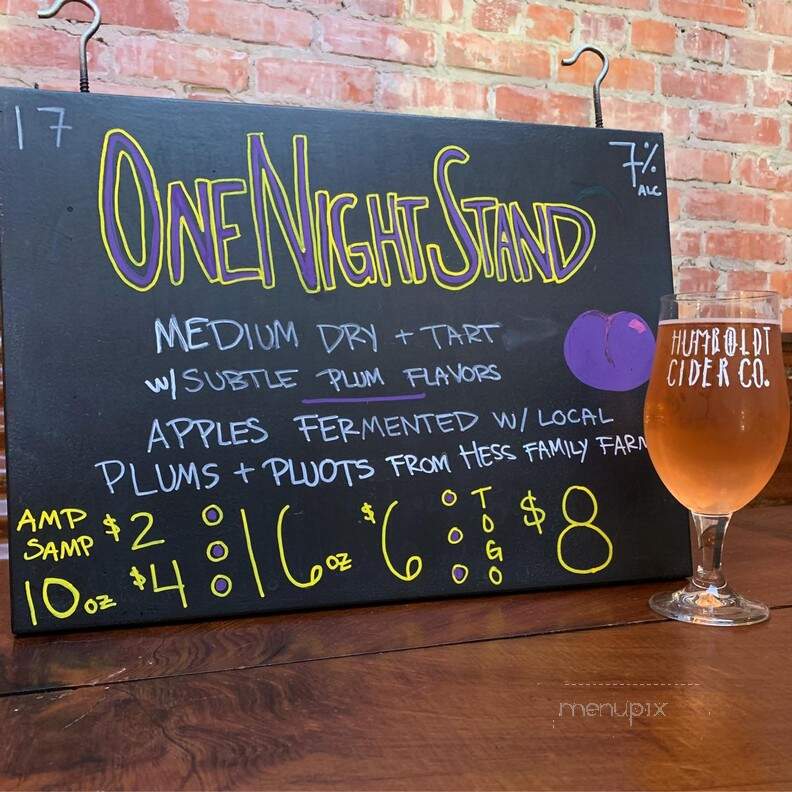 17
7%
ALC
ONE NIGHT STAND
MEDIUM DRY + TART
W/ SUBTLE PLUM FLAVORS
APPLES FERMENTED W/ LOCAL
PLUMS + PLUOTS FROM HESS FAMILY FARM
AMP SAMP $2
10oz $4
16oz $6
TOGO $8
HUMBOLDT
CIDER CO.
menupix